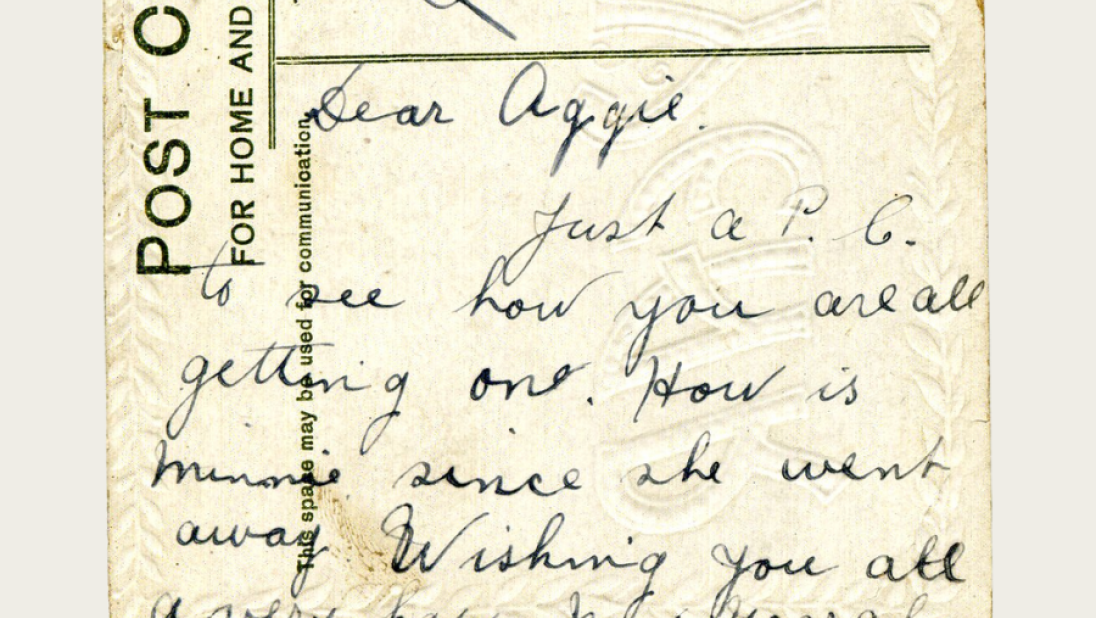 POST C
FOR HOME AND
This space may be used for communication.
Dear Aggie.
Just a P. C.
to see how you are all
getting one. How is
Minnie since she went
away Wishing you all
a very